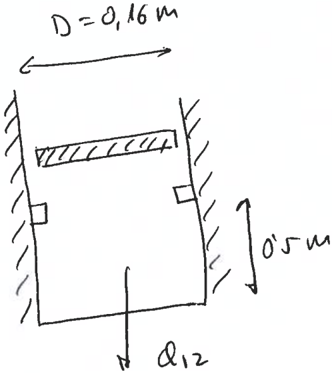 D = 0,16 m
0'5 m
Q12